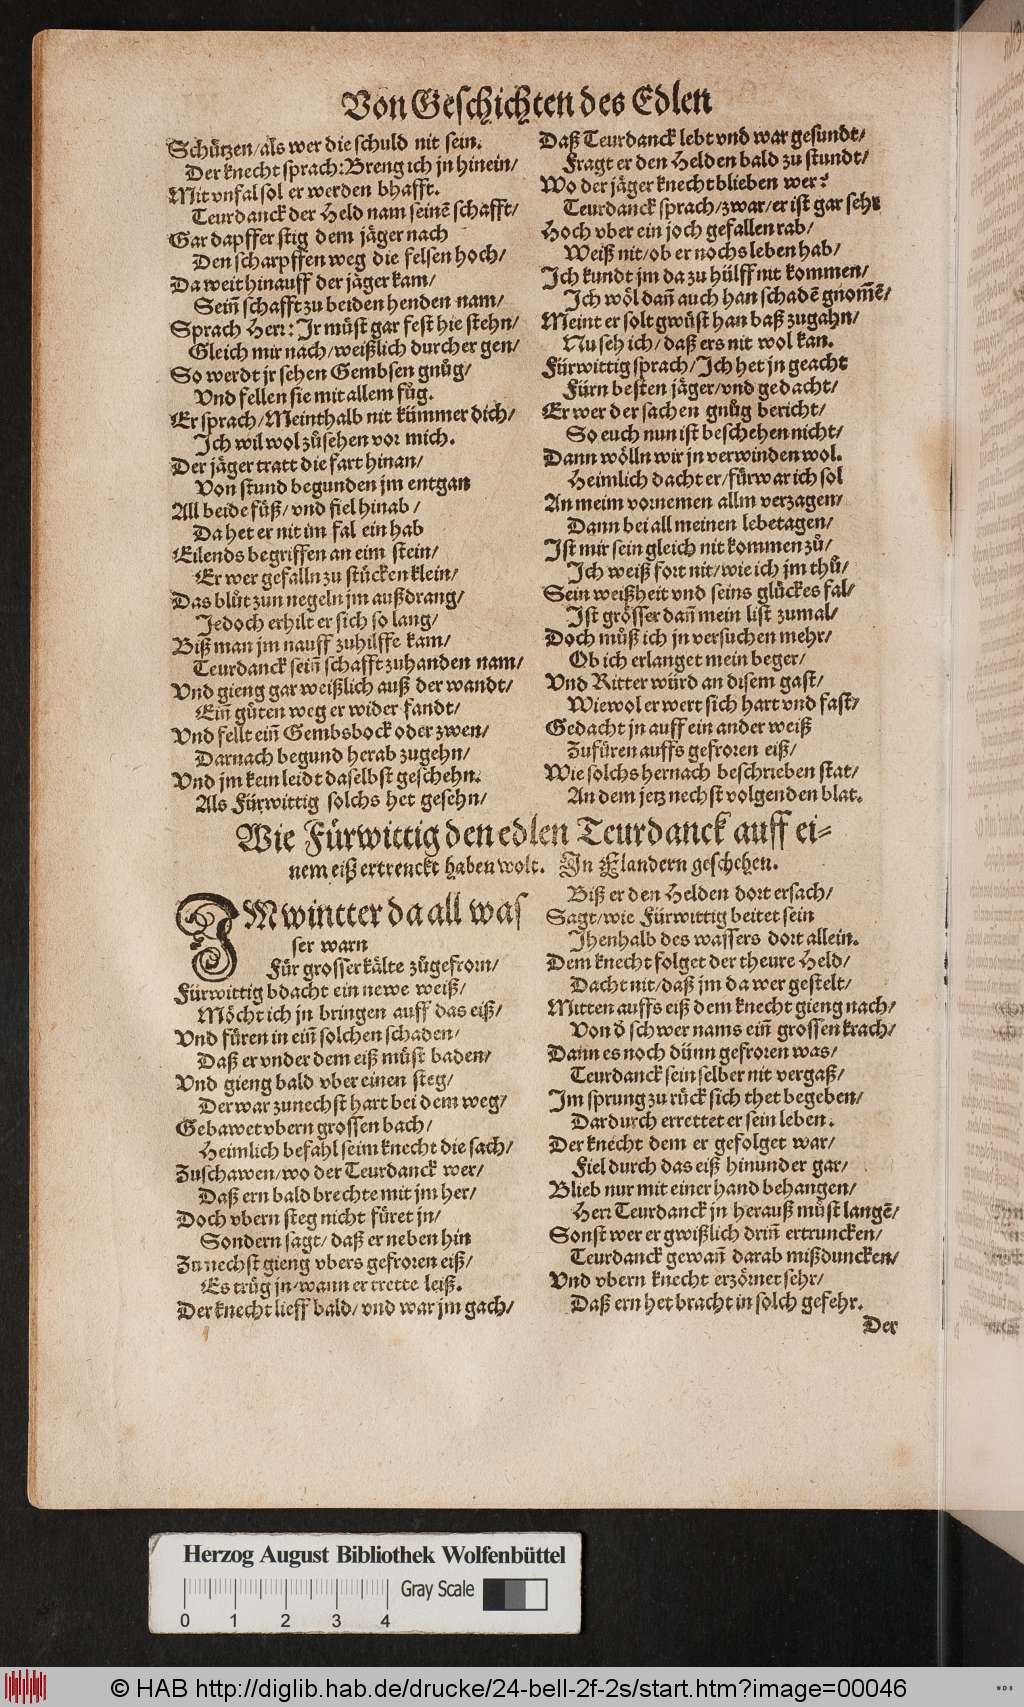 Von Geschichten des Edlen
Schützen/als wer die schuld nit sein.
Der knecht sprach: Breng ich jn hinein/
Mit vnfal sol er werden bhafft.
Teurdanck der Held nam seinē schafft/
Gar dapffer stig dem jäger nach
Den scharpffen weg die felsen hoch/
Da weit hinauff der jäger kam/
Sein̄ schafft zu beiden henden nam/
Sprach Herr: Ir müst gar fest hie stehn/
Gleich mir nach/weißlich durch er gen/
So werdt jr sehen Gembsen gnůg/
Vnd fellen sie mit allem fůg.
Er sprach/Meinthalb nit kümmer dich/
Ich wil wol zůsehen vor mich.
Der jäger tratt die fart hinan/
Von stund begunden jm entgan
All beide füß/vnd fiel hinab/
Da het er nit im fal ein hab
Eilends begriffen an eim stein/
Er wer gefalln zu stücken klein/
Das blůt zun negeln jm außdrang/
Jedoch erhilt er sich so lang/
Biß man jm nauff zuhilffe kam/
Teurdanck sein̄ schafft zuhanden nam/
Vnd gieng gar weißlich auß der wandt/
Ein̄ güten weg er wider fandt/
Vnd fellt ein̄ Gembsbock oder zwen/
Darnach begund herab zugehn/
Vnd jm kein leidt daselbst geschehn.
Als Fürwittig solchs het gesehn/
Daß Teurdanck lebt vnd war gesundt/
Fragt er den Helden bald zu stundt/
Wo der jäger knecht blieben wer?
Teurdanck sprach/zwar/er ist gar sehr
Hoch vber ein joch gefallen rab/
Weiß nit/ob er nochs leben hab/
Ich kundt jm da zu hülff nit kommen/
Ich wöl dan̄ auch han schadē gnom̄ē/
Meint er solt gwüst han baß zugahn/
Nu seh ich/daß ers nit wol kan.
Fürwittig sprach/Ich het jn geacht
Fürn besten jäger/vnd gedacht/
Er wer der sachen gnůg bericht/
So euch nun ist beschehen nicht/
Dann wölln wir jn verwinden wol.
Heimlich dacht er/fürwar ich sol
An meim vornemen allm verzagen/
Dann bei all meinen lebetagen/
Ist mir sein gleich nit kommen zů/
Ich weiß fort nit/wie ich jm thů/
Sein weißheit vnd seins glückes fal/
Ist grösser dan̄ mein list zumal/
Doch můß ich jn versuchen mehr/
Ob ich erlanget mein beger/
Vnd Ritter würd an disem gast/
Wiewol er wert sich hart vnd fast/
Gedacht jn auff ein ander weiß
Zufüren auffs gefroren eiß/
Wie solchs hernach beschrieben stat/
An dem jetz nechst volgenden blat.
Wie Fürwittig den edlen Teurdanck auff ei-
nem eiß ertrenckt haben wolt. In Flandern geschehen.
IM wintter da all was
ser warn
Für grosser kälte zůgefrorn/
Fürwittig bdacht ein newe weiß/
Möcht ich jn bringen auff das eiß/
Vnd füren in ein̄ solchen schaden/
Daß er vnder dem eiß müst baden/
Vnd gieng bald vber einen steg/
Der war zunechst hart bei dem weg/
Gebawet vbern grossen bach/
Heimlich befahl seim knecht die sach/
Zuschawen/wo der Teurdanck wer/
Daß ern bald brechte mit jm her/
Doch vbern steg nicht füret jn/
Sondern sagt/daß er neben hin
Zunechst gieng vbers gefroren eiß/
Es trüg jn/wann er trette leiß.
Der knecht lieff bald/vnd war jm gach/
Biß er den Helden dort ersach/
Sagt/wie Fürwittig beitet sein
Ihenhalb des wassers dort allein.
Dem knecht folget der theure Held/
Dacht nit/daß jm da wer gestelt/
Mitten auffs eiß dem knecht gieng nach/
Von d̄ schwer nams ein̄ grossen krach/
Dann es noch dünn gefroren was/
Teurdanck sein selber nit vergaß/
Im sprung zu rück sich thet begeben/
Dardurch errettet er sein leben.
Der knecht dem er gefolget war/
Fiel durch das eiß hinunder gar/
Blieb nur mit einer hand behangen/
Herr Teurdanck jn herauß můst langē/
Sonst wer er gwißlich drin̄ ertruncken/
Teurdanck gewan̄ darab mißduncken/
Vnd vbern knecht erzörnet sehr/
Daß ern het bracht in solch gefehr.
Der
Herzog August Bibliothek Wolfenbüttel
Gray Scale
0 1 2 3 4
© HAB http://diglib.hab.de/drucke/24-bell-2f-2s/start.htm?image=00046